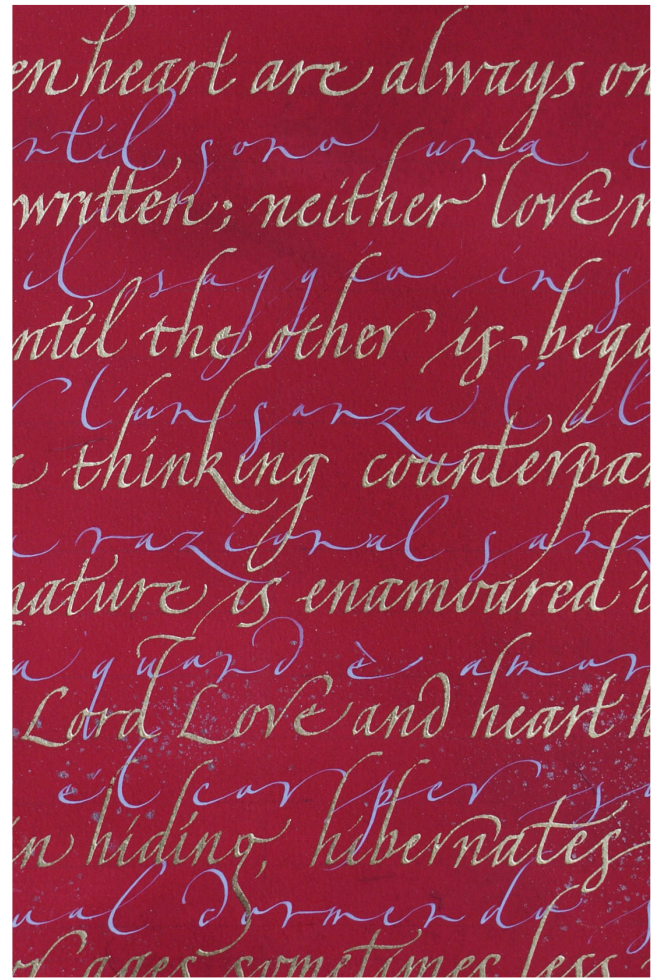 en heart are always on
ntil sono una c
written; neither love n
il saggio in s
ntil the other is begu
l'un sanza l'al
c thinking counterpar
a razional sanz
nature is enamoured i
a quand è amor
Lord Love and heart h
el cor per s
in hiding, hibernates
ual dormendo s
or ages sometimes less